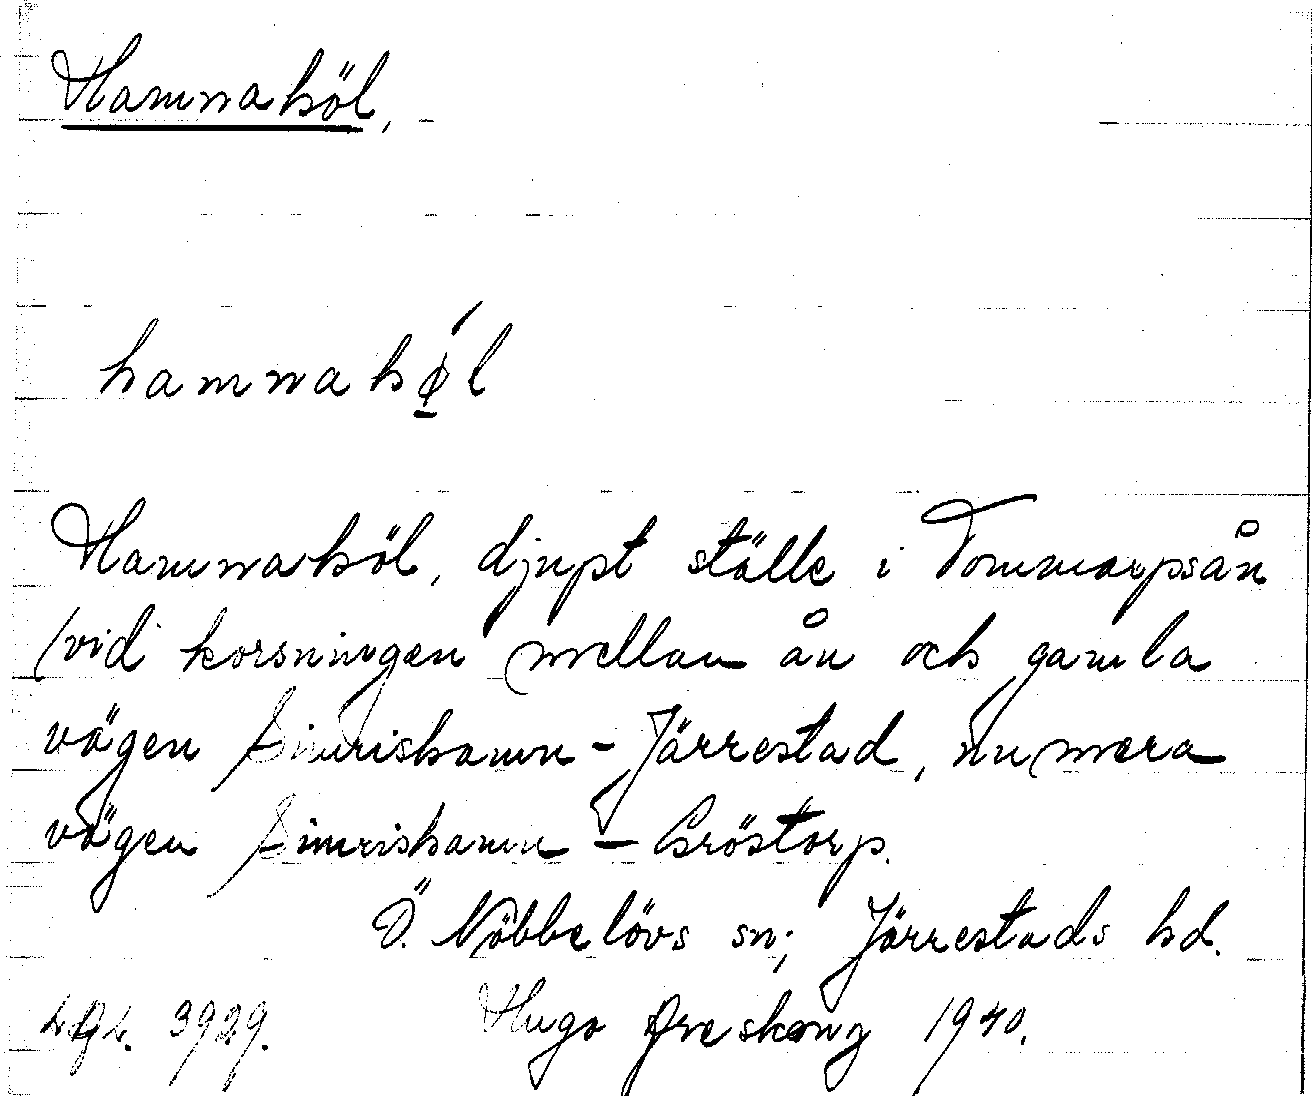 Hamnahöl,
hamnahǿ̱l
Hamnahöl, djupt ställe i Tommarpsån
(vid korsningen mellan ån och gamla
vägen Simrishamn - Järrestad, numera
vägen Simrishamn - Gröstorp.
Ö. Nöbbelövs sn; Järrestads hd.
3929. Hugo Areskoug 1940.